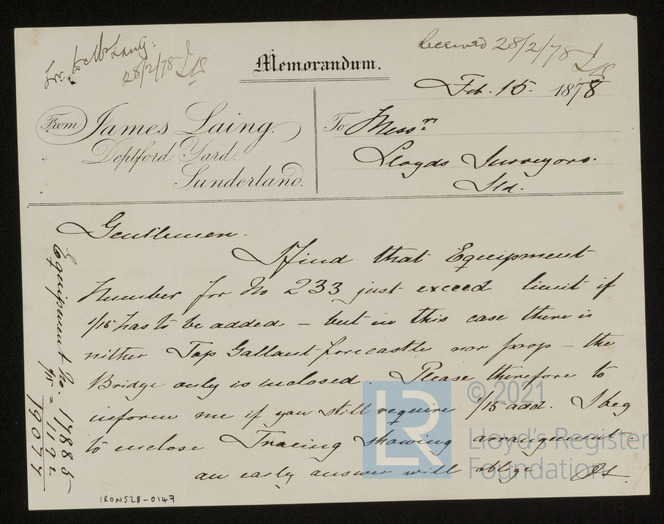 Mr Laing.
28/2/78
Received 28/2/78
Memorandum.
Feb. 15. 1878
From James Laing.
Deptford Yard.
Sunderland.
To Messrs
Lloyds Surveyors.
Sld.
Gentlemen.
I find that Equipment
Number for No 233 just exceed limit if
1/15 has to be added – but in this case there is
nither Top Gallant forecastle nor poop – the
Bridge only is inclosed. Please therefore to
inform me if you still require 1/15 add. I beg
to inclose Tracing showing arrangement
an early answer will oblige
Equipment No. 17885
1/15 = 1192
19077
IRON528-0147
© 2021
LR
Lloyd's Register
Foundation